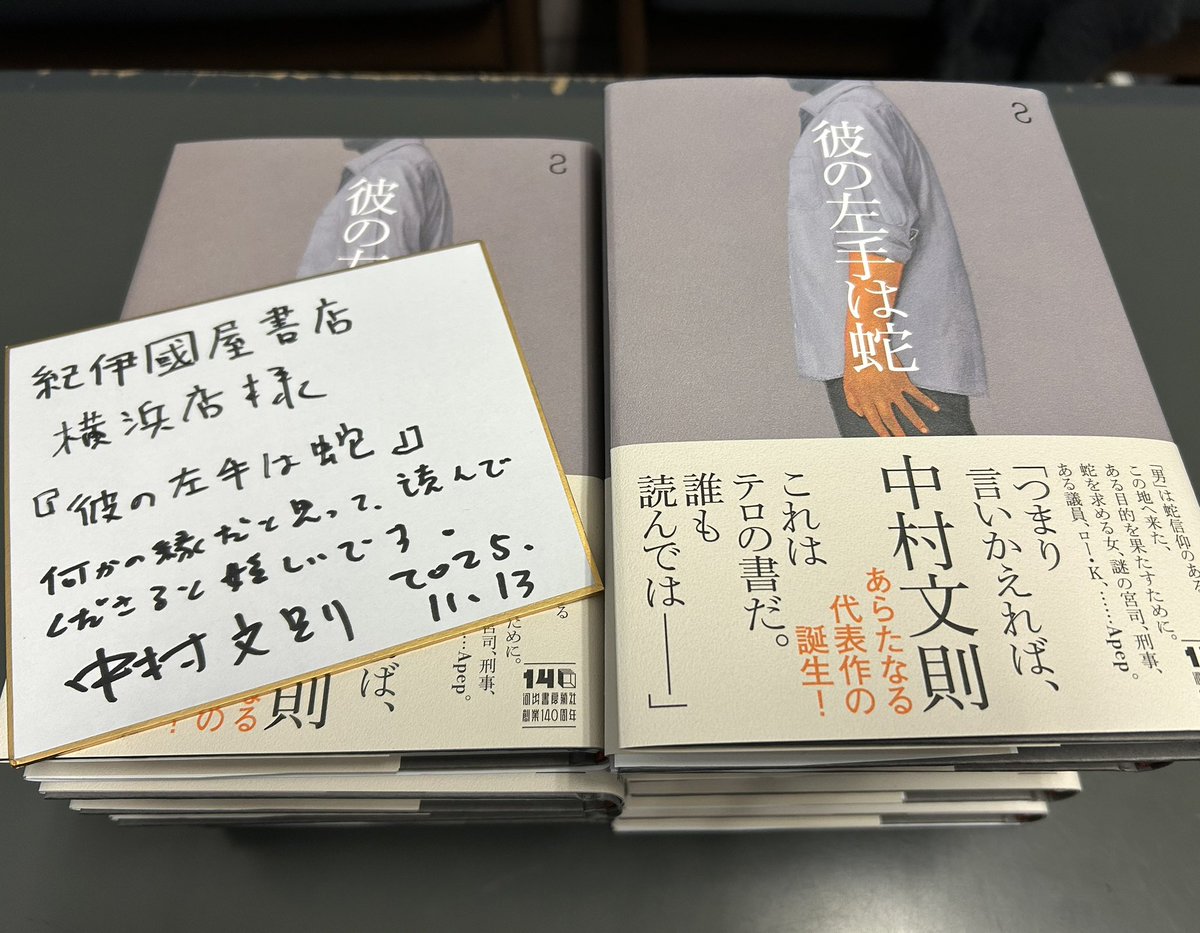 紀伊國屋書店
横浜店様
『彼の左手は蛇』
何かの縁だと思って、読んで
くださると嬉しいです。
中村文則
2025.
11.13
彼の左
S
ために。
宮司、刑事、
……Apep。
ば、
則
なる
の
！
140
河出書房新社
創業140周年
S
彼の左手は蛇
「男」は蛇信仰のある
この地へ来た、
ある目的を果たすために。
蛇を求める女、謎の宮司、刑事、
ある議員、ロー・K、……Apep。
「つまり
言いかえれば、
中村文則
あらたなる
代表作の
誕生！
これは
テロの書だ。
誰も
読んでは――」